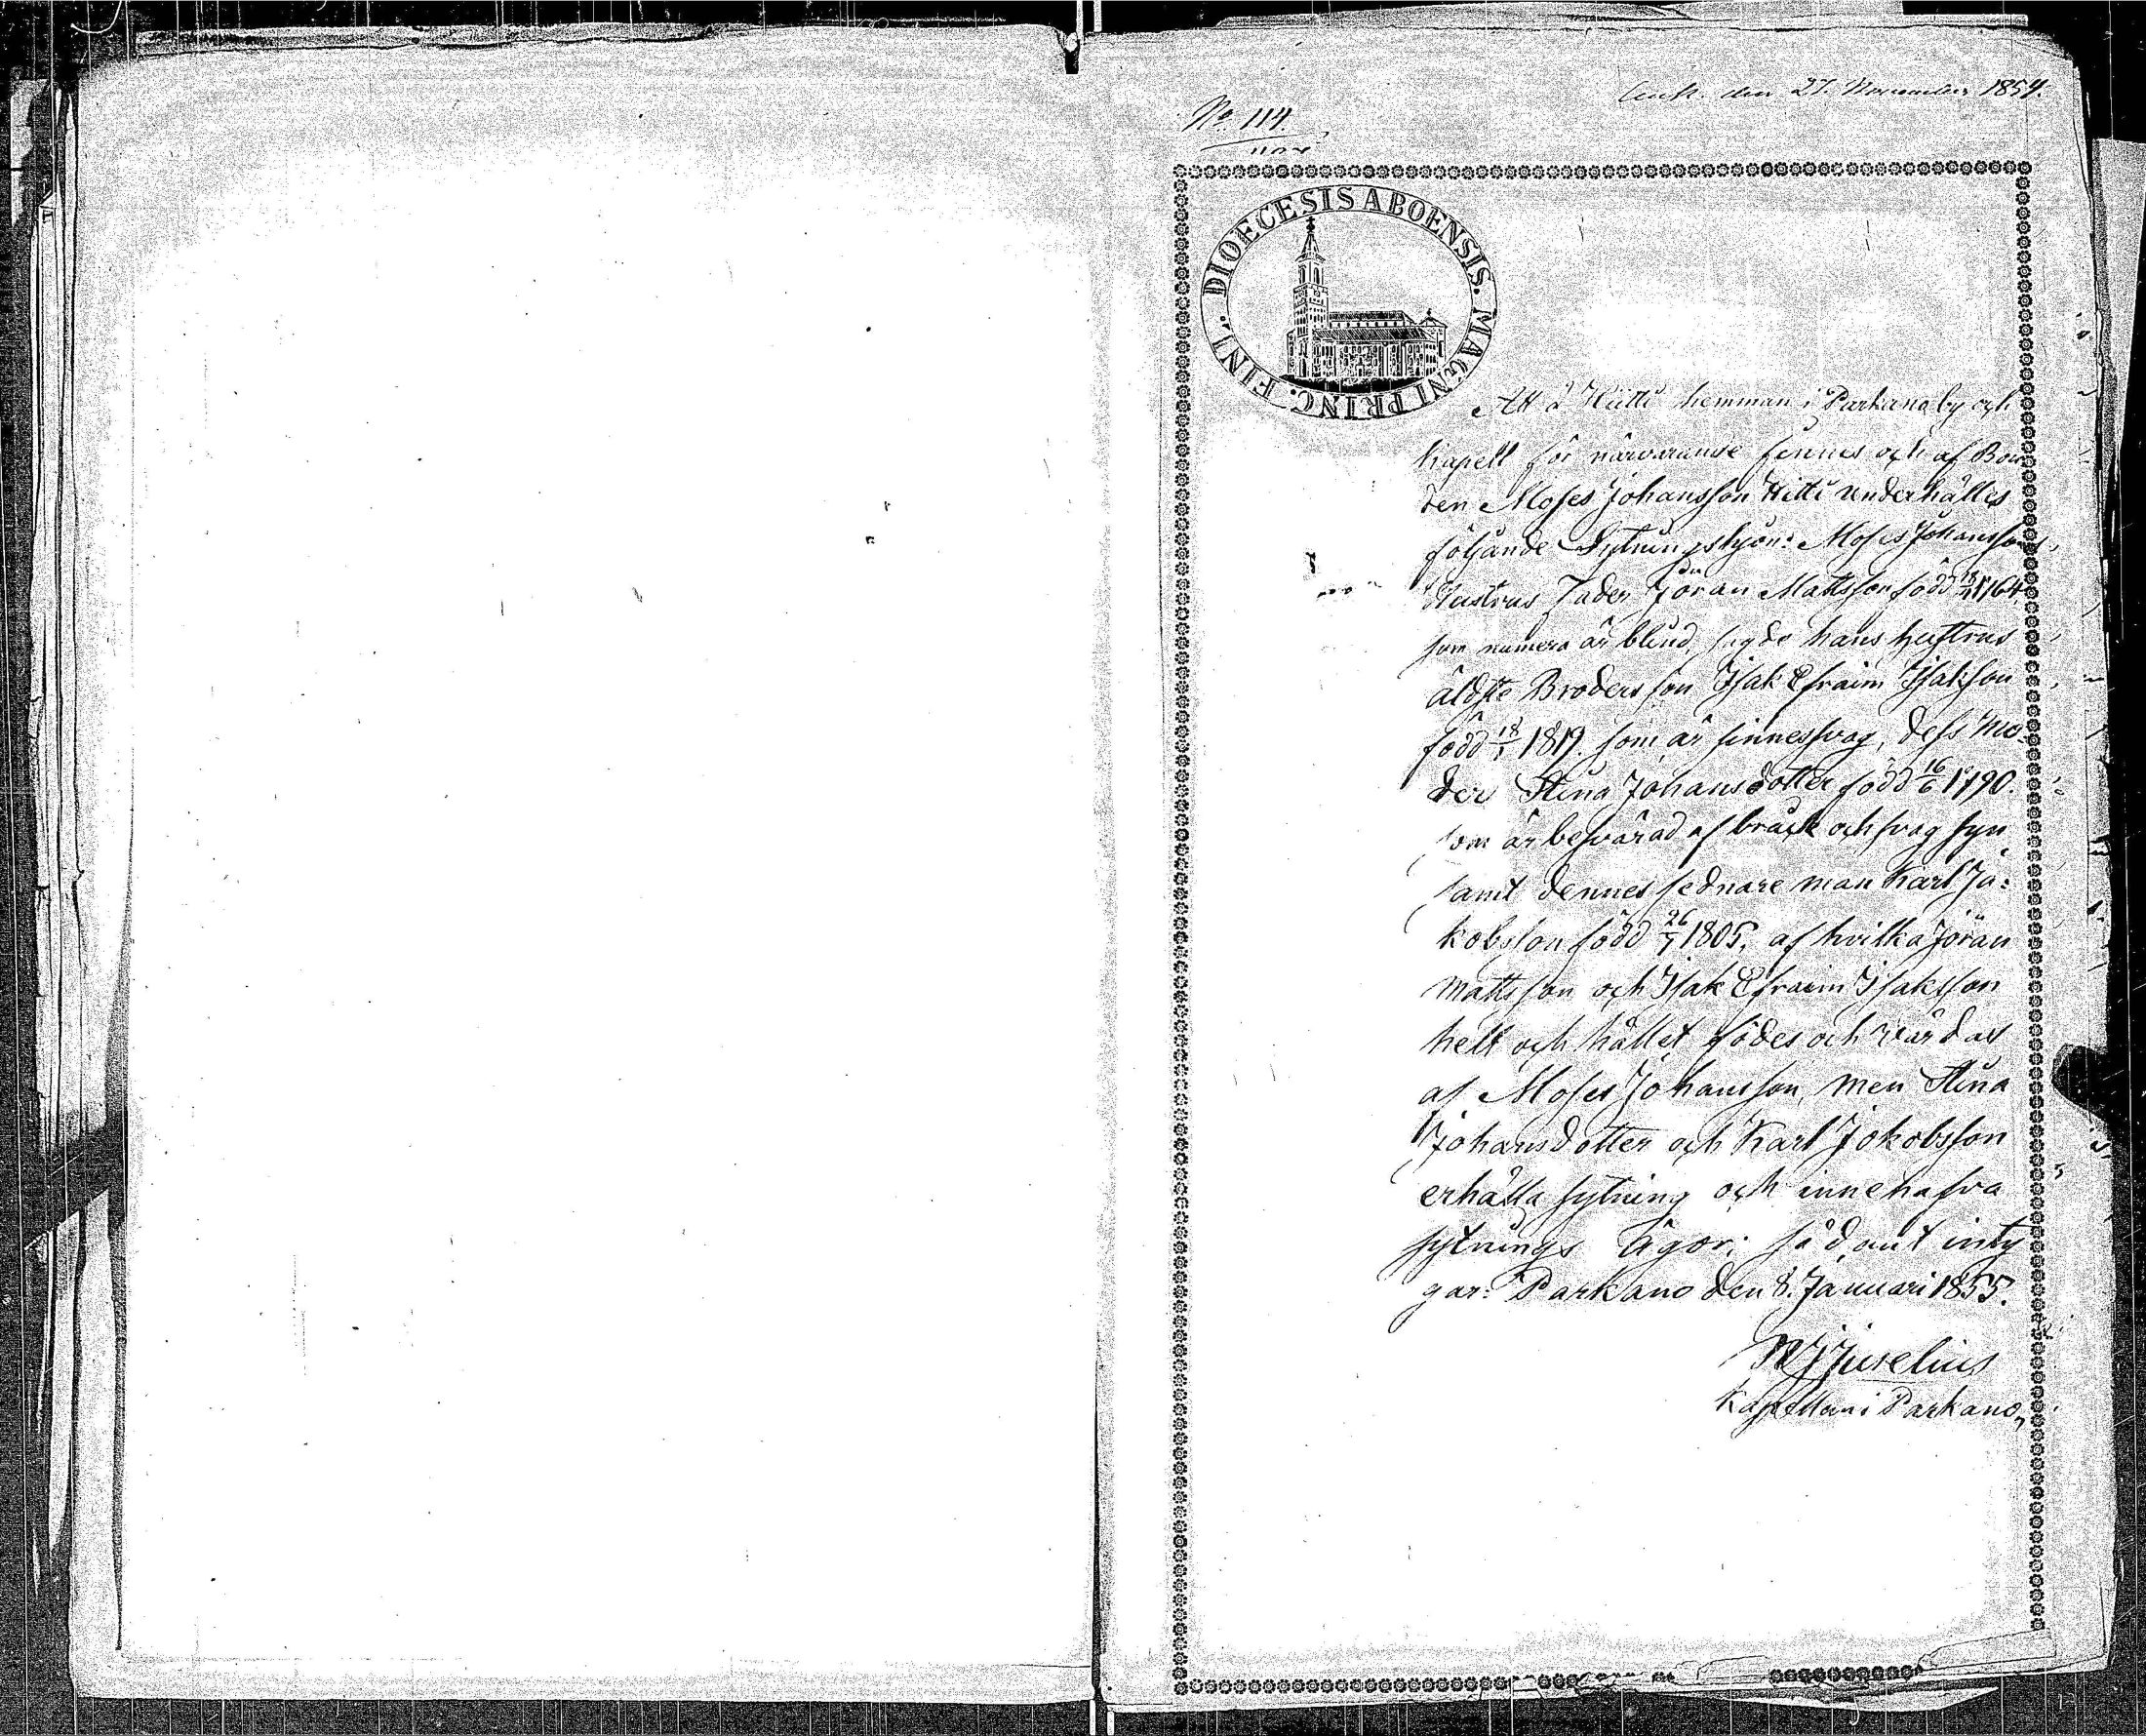 den 27. November 1854.
No. 114.
DIOECESIS ABOENSIS. MAGNI PRINC. FINL.
Att å Hiitti hemman i Parkano by och
kapell för närvarande finnes och af Bon
den Moses Johansson Hitti underhålles
följande Sytningshjon: Moses Johanssons
Hustrus Fader Jöran Mattsson född 1764
som numera är blind, hans hustrus
äldste Brodersson Isak Efraim Isaksson
född 18/1 1819. som är sinnessvag, dess Mo-
der Stina Johansdotter född 16/6 1790.
som är besvärad af bråck och svag syn
samt dennes sednare man Karl Ja:
kobsson född 26/7 1805, af hvilka Jöran
Mattsson och Isak Efraim Isaksson
helt och hållet födes och vårdas
af Moses Johansson, men Stina
Johansdotter och Karl Jakobsson
erhålla sytning och innehafva
sytnings ägor; sådant inty
gar: Parkano den 8. Januari 1855.
Juselius
Kapellan i Parkano,